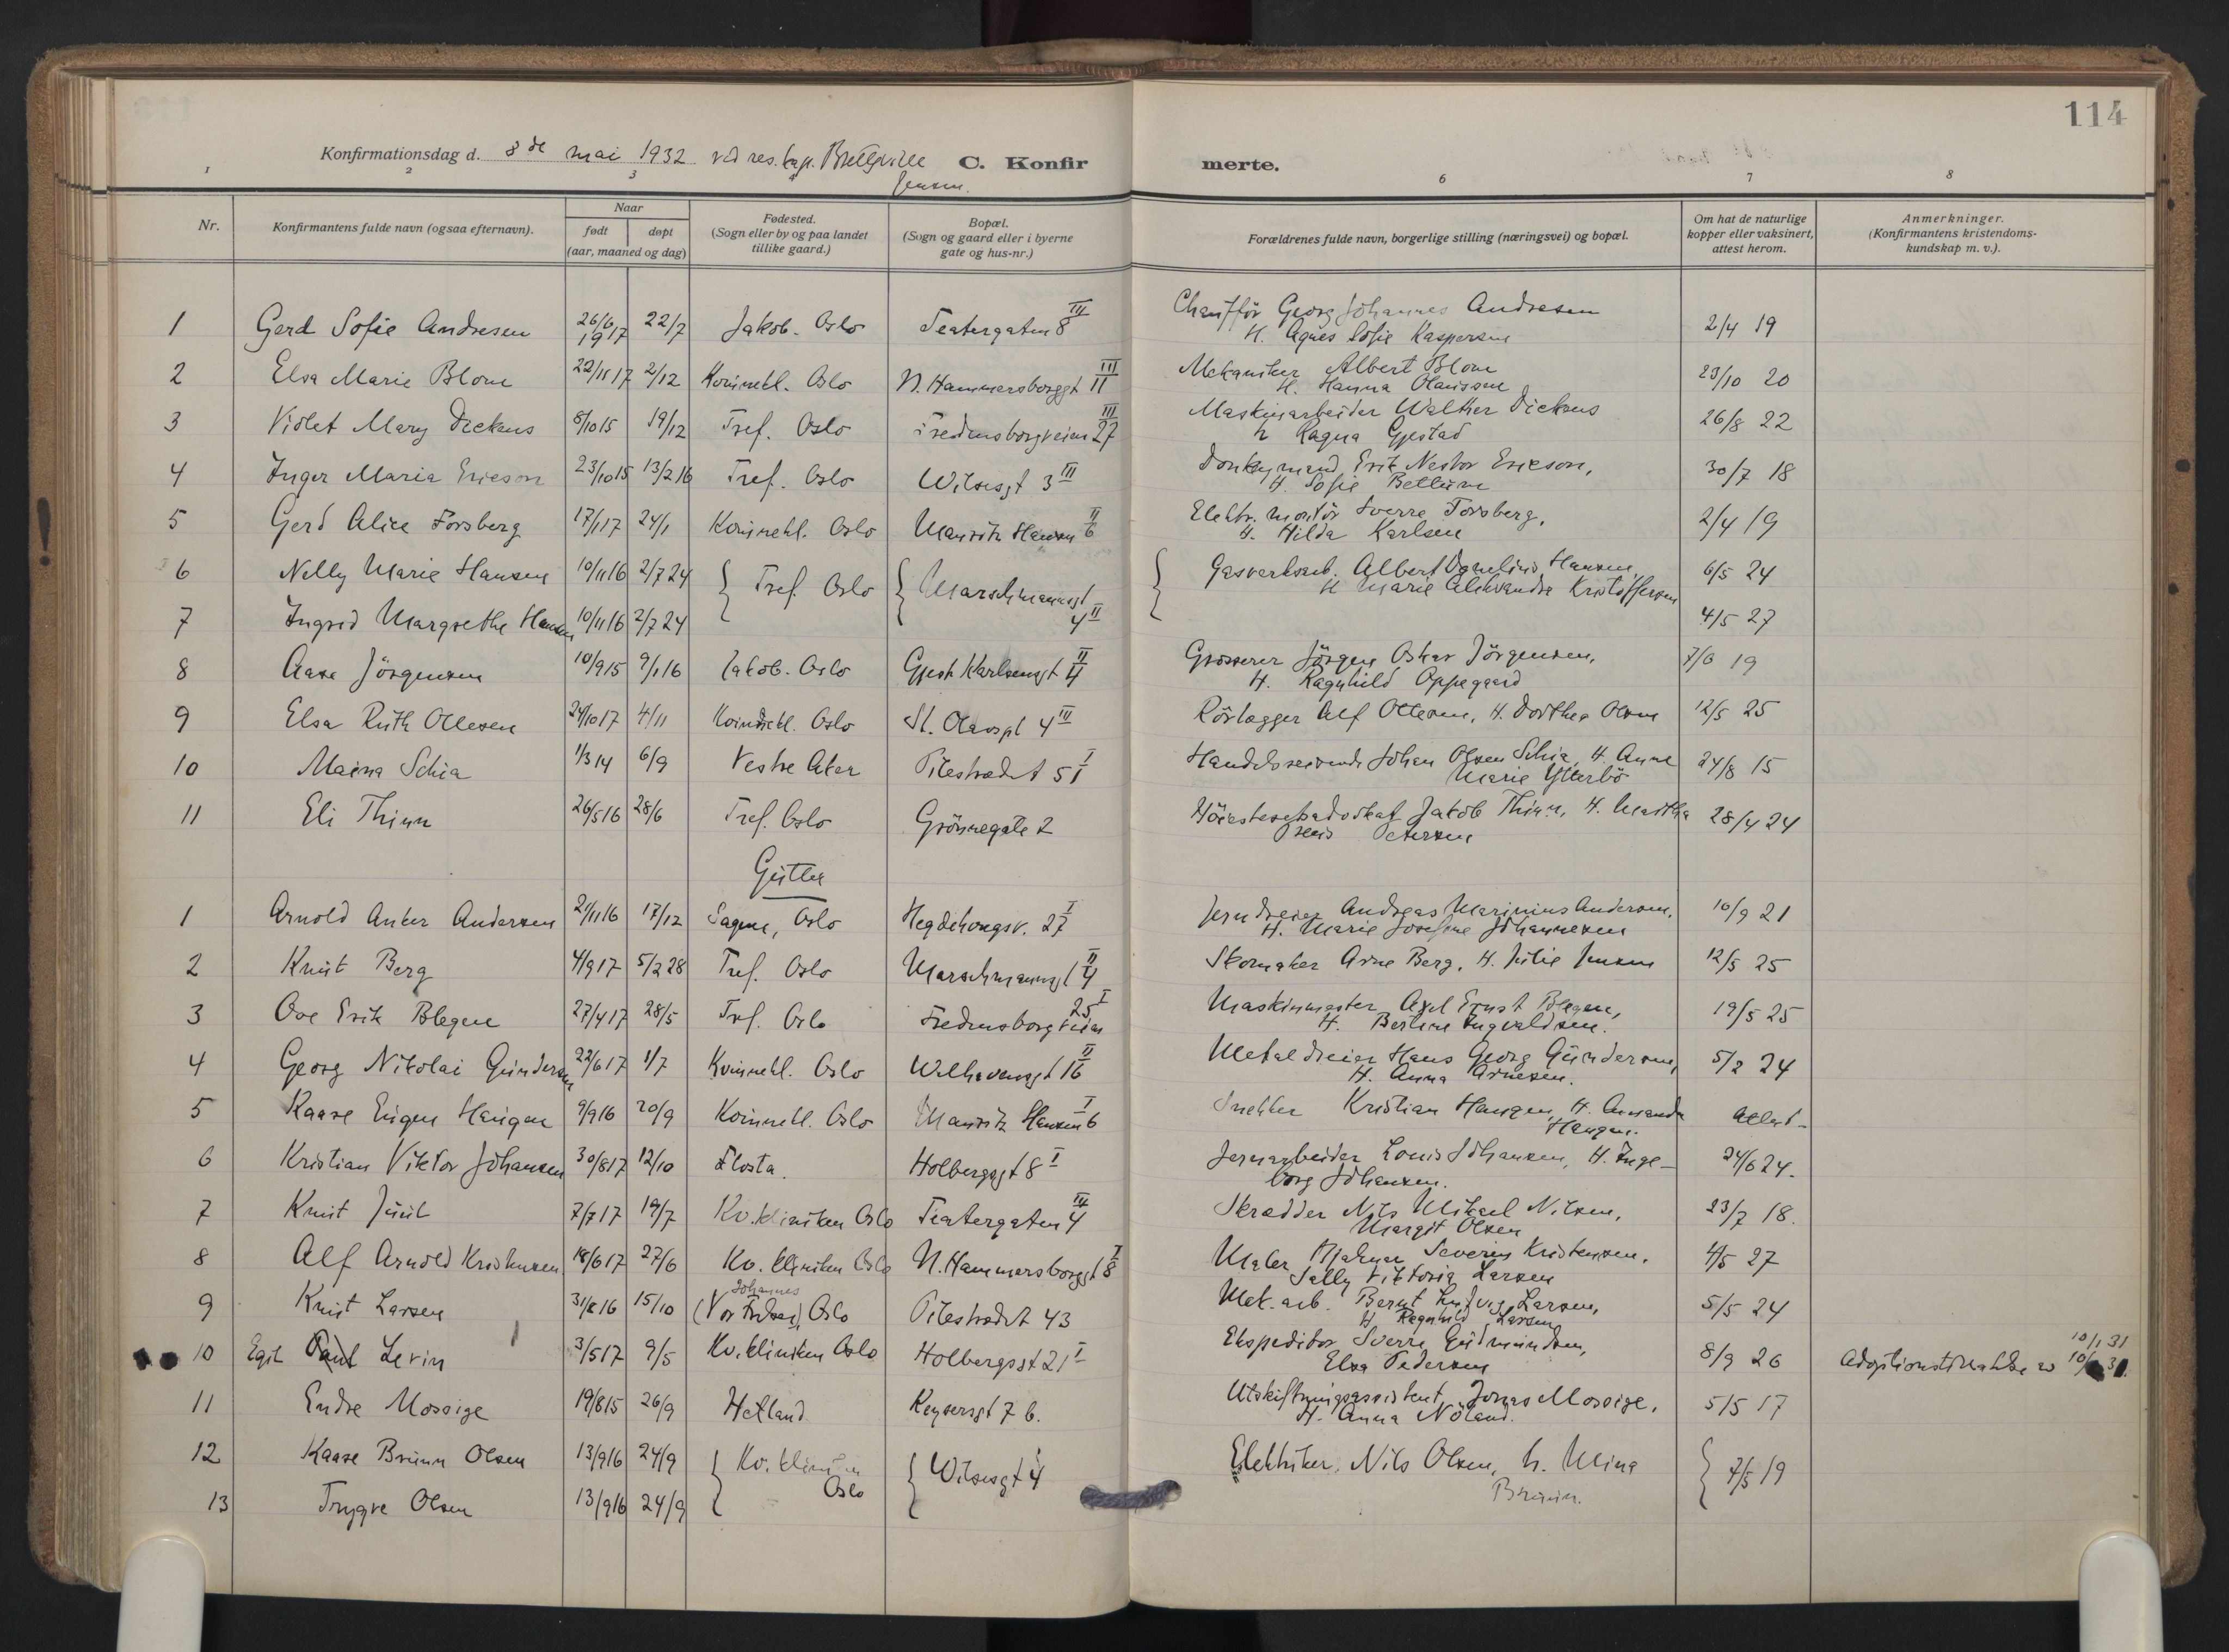 114
Konfirmationsdag d. 8de mai 1932 ved res. kap. Brettville Jensen. C. Konfirmerte.
1 2 3 4 6 7 8
Nr. Konfirmantens fulde navn (ogsaa efternavn). Naar født døpt (aar, maaned og dag) Fødested. (Sogn eller by og paa landet tillike gaard.) Bopæl. (Sogn og gaard eller i byerne gate og hus-nr.) Forældrenes fulde navn, borgerlige stilling (næringsvei) og bopæl. Om hat de naturlige kopper eller vaksinert, attest herom. Anmerkninger. (Konfirmantens kristendomskundskap m. v.).
1 Gerd Sofie Andresen 26/6 1917 22/7 Jakob. Oslo Teatergaten 8 III Chauffør Georg Johannes Andresen H. Agnes Sofie Kaspersen 2/4 19
2 Elsa Marie Blom 22/11 17 2/12 Kvinnekl. Oslo N. Hammersborggt 11 III Mekaniker Albert Blom H. Hanna Olaussen 23/10 20
3 Violet Mary Dickens 8/10 15 19/12 Tref. Oslo Fredensborgveien 27 III Maskinarbeider Walther Dickens h Ragna Gjestad 26/8 22
4 Inger Maria Ericson 23/10 15 13/2 16 Tref. Oslo Wilsesgt 3 III Donkeymand Erik Nestor Ericson, H. Sofie 30/7 18
5 Gerd Alice Forsberg 17/1 17 24/1 Kvinnekl. Oslo Mauritz Hansen 6 II Elektr. montør Sverre Forsberg, H. Hilda Karlsen 2/4 19
6 Nelly Marie Hansen 10/11 16 2/7 24 Tref. Oslo Marschmannsgt 4 II Gasverksarb. Albert Kornelius Hansen, H Marie Aleksandra Kristoffersen 6/5 24
7 Ingrid Margrethe Hansen 10/11 16 2/7 24 4/5 27
8 Aase Jörgensen 10/9 15 9/1 16 Jakob. Oslo Gjest Karlsensgt 4 II Grosserer Jörgen Oskar Jörgensen, H. Ragnhild Oppegaard 7/6 19
9 Elsa Ruth Ottesen 24/10 17 4/11 Kvinnekl. Oslo St. Olavspl 4 III Rörlægger Alf Ottesen, H. Dorthea Olsen 12/5 25
10 Maina Schia 1/3 14 6/9 Vestre Aker Pilestrædet 51 I Handelsreisende Johan Olsen Schia, H. Anne Marie Ytterbö 24/8 15
11 Eli Thinn 26/5 16 28/6 Tref. Oslo Grönnegate 2 Höiesteretsadvokat Jakob Thinn, H. Martha Petersen 28/4 24
Gutter
1 Arnold Anker Andersen 21/11 16 17/12 Sagene, Oslo Hegdehaugsv. 27 I Jerndreier Andreas Marinius Andersen, H. Marie Josefine Johannesen 10/9 21
2 Knut Berg 4/9 17 5/2 28 Tref. Oslo Marschmannsgt 4 II Skomaker Arne Berg, H. Julie Jensen 12/5 25
3 Ove Erik Blegen 27/4 17 28/5 Tref. Oslo Fredensborgveien 25 I Maskinmester Axel Ernst Blegen, H. Bertine Ingvaldsen. 19/5 25
4 Georg Nikolai Gundersen 22/6 17 1/7 Kvinnekl. Oslo Welhavensgt 16 II Metaldreier Hans Georg Gundersen, H. Anna Arnesen. 5/2 24
5 Kaare Eugen Haugan 9/9 16 20/9 Kvinnekl. Oslo Mauritz Hansen 6 I Snekker Kristian Haugen, H. Amanda Haugen. Attest
6 Kristian Viktor Johansen 30/8 17 12/10 Flosta. Holbergsgt 8 I Jernarbeider Louis Johansen, H. Ingeborg Johansen. 24/6 24.
7 Knut Juul 7/7 17 19/7 Kv.kliniken Oslo Teatergaten 4 III Skrædder Nils Mikael Nilsen, Margit Olsen 23/7 18.
8 Alf Arnold Kristensen 18/6 17 27/6 Kv. kliniken Oslo N. Hammersborggt 8 I Maler Hjalmar Severin Kristensen, Sally Viktoria Larsen 4/5 27
9 Knut Larsen 31/8 16 15/10 (Vor Frelser) Johannes Oslo Pilestrædet 43 Mek. arb. Bernt Ludvig Larsen, H Ragnhild Larsen 5/5 24
10 Egil Levin 3/5 17 9/5 Kv. kliniken Oslo Holbergsgt 21 I Ekspeditør Sverre Gudmundsen, Elsa Pedersen 8/9 26 Adoptionstilladelse av 10/1 31
11 Endre Mossige 19/8 15 26/9 Hetland Keysersgt 7 b. Utskiftningsassistent Jonas Mossige, H. Anna Nöland. 5/5 17
12 Kaare Bruun Olsen 13/9 16 24/9 Kv. kliniken Oslo Wilsesgt 4 Elektriker, Nils Olsen, h. Mina Bruun. 7/5 19
13 Trygve Olsen 13/9 16 24/9